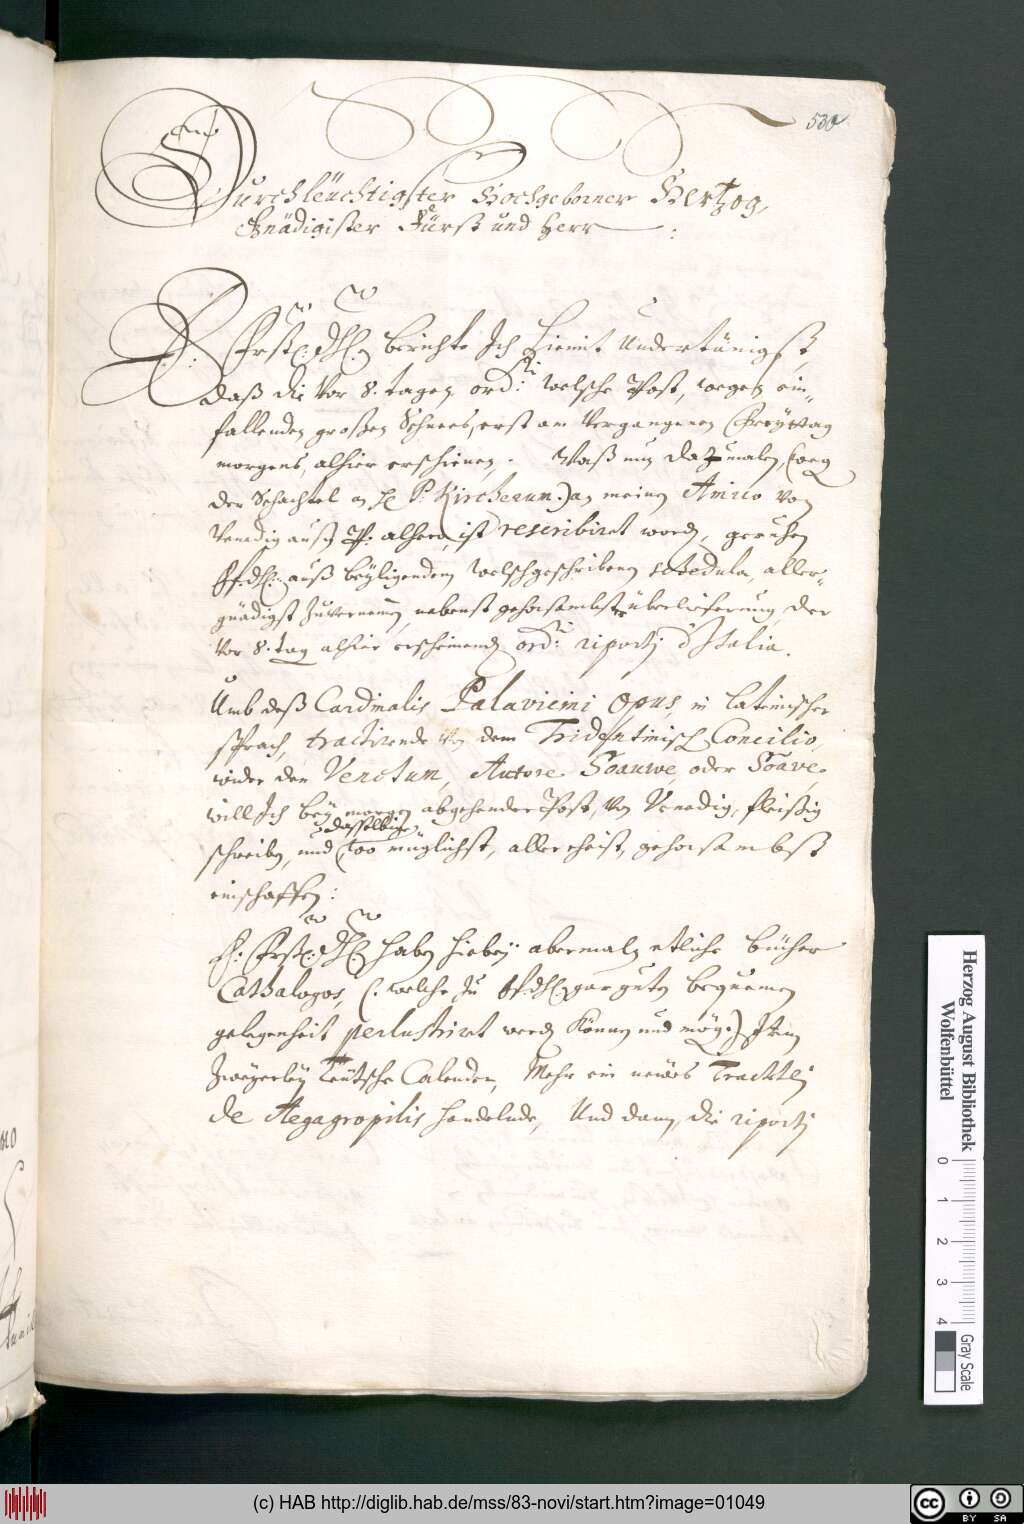 530
Durchleüchtigster Hochgeborner Hertzog,
Gnädigister Fürst und Herr :
E: Frstl: Dhl: berichte Ich hiemit Undertänigst,
daß die Vor 8. tagen ord:ri welsche Post, wegen ein-
fallenden großen Schnees, erst am Vergangenen Freyttag
morgens, alhier erschienen. Waß nun dazumalen, (weg
der Schachtel an P: Kircherum:) an meinen Amico Von
Venedig auß alhero, ist rescribiret worden, geruhen
E. F. Dhl: auß beyligenden welschgeschribenen schedula, aller-
gnädigst Zuvernemen, nebenst gehorsambster überliferung, der
Vor 8. tag alhier erscheinenden ord:ri riporti d'Italia.
Umb deß Cardinalis Palavicini Opus, in Lateinischer
sprach, tractirende Von dem Tridentinisch Concilio,
wider den Venetum, Autore Soauwe, oder Soave,
will Ich bey morgen abgehender Post, Von Venedig, fleißig
schreiben, und dasselbige, wo müglichst, aller ehist, gehorsambst
einschaffen:
E: Frstl: Dhl: haben hiebey abermaln etliche bücher
Cathalogos, (: welche zu E. F. Dhl: gar guten bequemen
gelegenheit perlustriret werden können und mög:) Item
Zweyerley Teütsche Calender, Mehr ein neües Tracttl
de Aegagropilis handelnde, Und dann, die riporti
Herzog August Bibliothek
Wolfenbüttel
0 1 2 3 4
Gray Scale
(c) HAB http://diglib.hab.de/mss/83-novi/start.htm?image=01049
cc BY SA